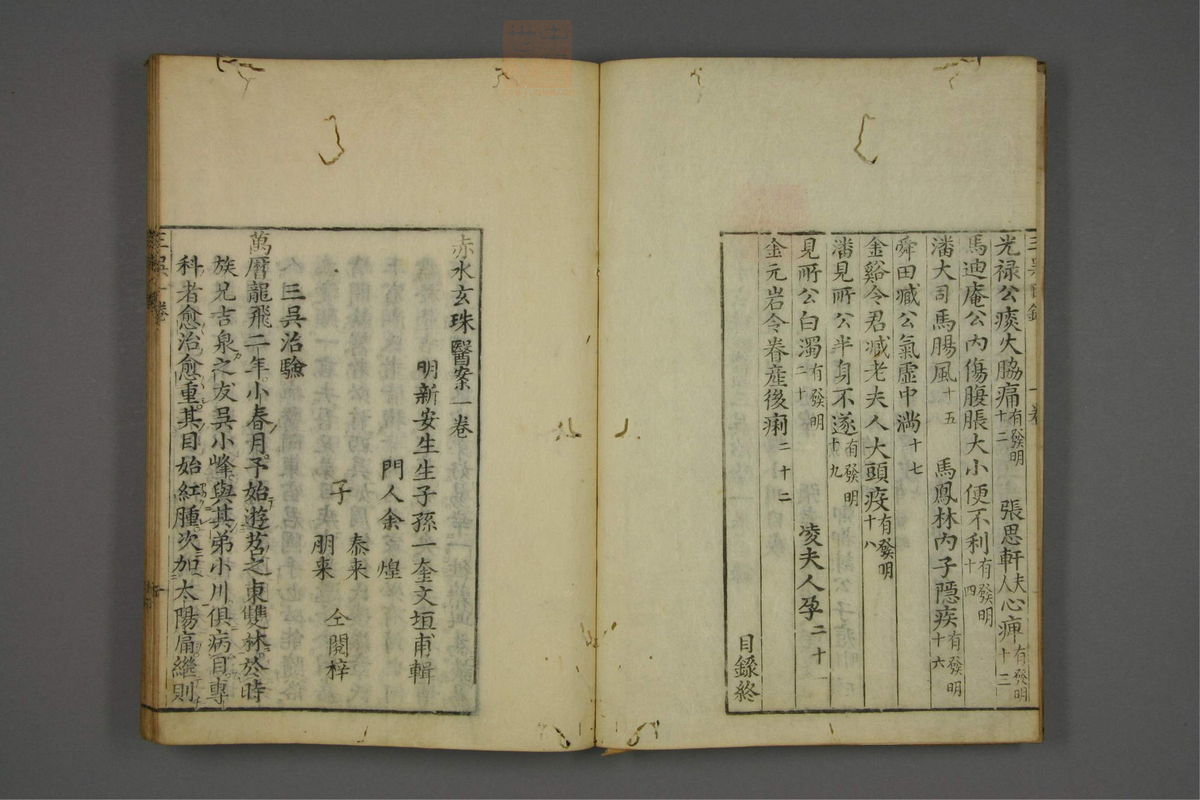 光禄公痰火脇痛有發明十二 張思軒夫人心痺有發明十三
馬迪庵公内傷腹脹大小便不利有發明十四
潘大司馬腸風十五 馬鳳林内子隱疾有發明十六
舜田臧公氣虚中滿十七
金谿令君臧老夫人大頭疫有發明十八
潘見所公半身不遂有發明十九
見所公白濁有發明二十 凌夫人孕二十一
金元岩令眷産後痢二十二
目錄終
赤水玄珠醫案一卷
明新安生生子孫一奎文垣甫輯
門人余煌
子 泰来
朋来 仝閱梓
三吳治驗
萬曆龍飛二年小春月予始遊苕之東雙林於時
族兄吉泉之友吳小峰與其弟小川俱病目專
科者愈治愈重其目始紅腫次加太陽痛繼則